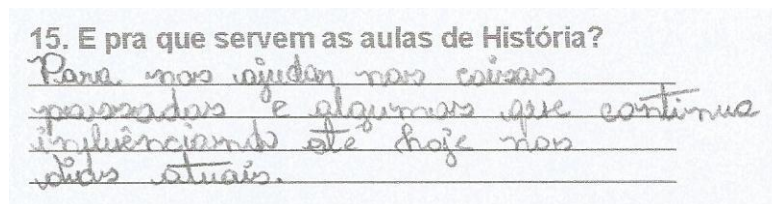 15. E pra que servem as aulas de História?
Para nos ajudar nas coisas
passadas e algumas que continua
influênciando até hoje nos
dids atuais.